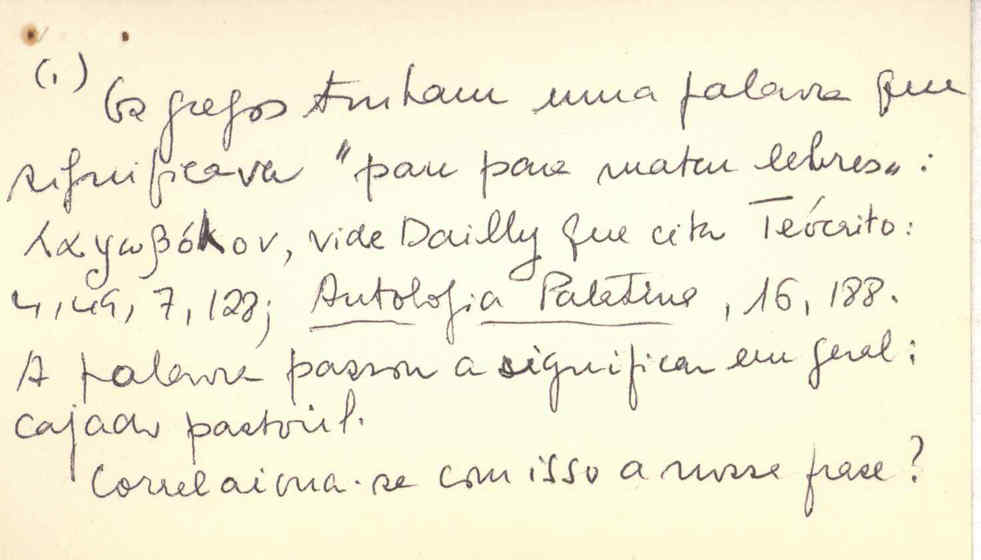 (1)
Os gregos tinham uma palavra que
significava "pau para matar lebres":
λαγωβόλον, vide Bailly que cita Teócrito:
4,49, 7, 128; Antologia Palatina, 16, 188.
A palavra passou a significar em geral:
cajado pastoril.
Correlaciona-se com isso a nossa frase?